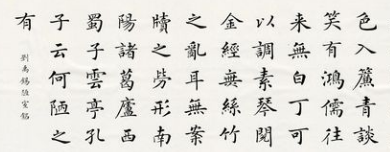 色入簾青談
笑有鴻儒往
来無白丁可
以調素琴閱
金經無絲竹
之亂耳無案
牘之劳形南
陽諸葛廬西
蜀子雲亭孔
子云何陋之
有
劉禹錫陋室銘